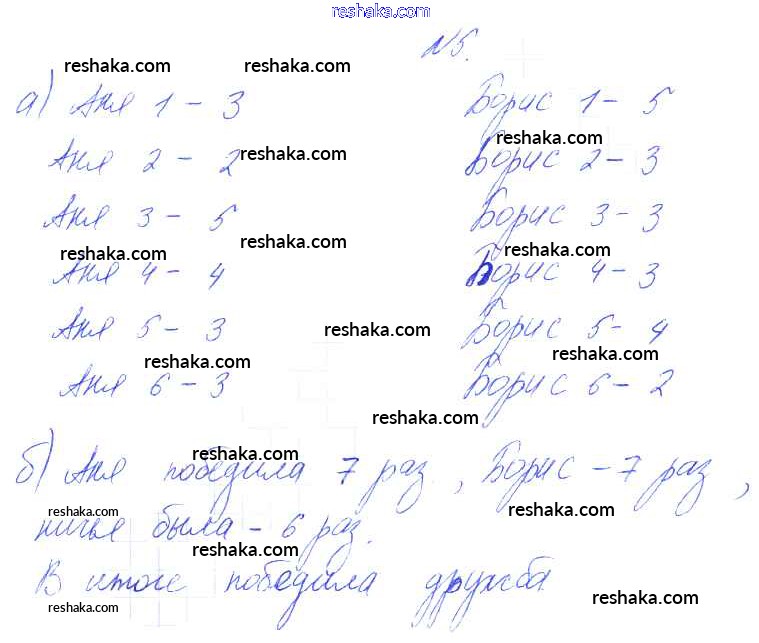 reshaka.com
N5.
reshaka.com reshaka.com
а) Аня 1 - 3 Борис 1 - 5
reshaka.com reshaka.com
Аня 2 - 2 Борис 2 - 3
Аня 3 - 5 Борис 3 - 3
reshaka.com reshaka.com reshaka.com
Аня 4 - 4 Борис 4 - 3
Аня 5 - 3 reshaka.com Борис 5 - 4
reshaka.com reshaka.com
Аня 6 - 3 Борис 6 - 2
reshaka.com
reshaka.com
б) Аня победила 7 раз, Борис - 7 раз,
reshaka.com
ничья была - 6 раз.
reshaka.com
В итоге победила дружба
reshaka.com reshaka.com